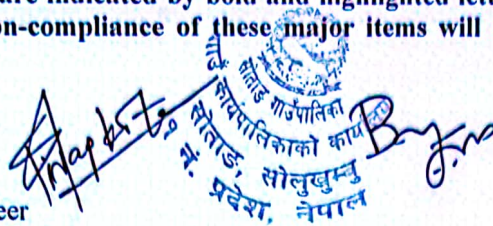 are indicated by bold and highlighted lett
on-compliance of these major items will
सोताङ गाउँपालिका
गाउँ कार्यपालिकाको कार्यालय
सोताङ, सोलुखुम्बु
१ नं. प्रदेश, नेपाल
eer